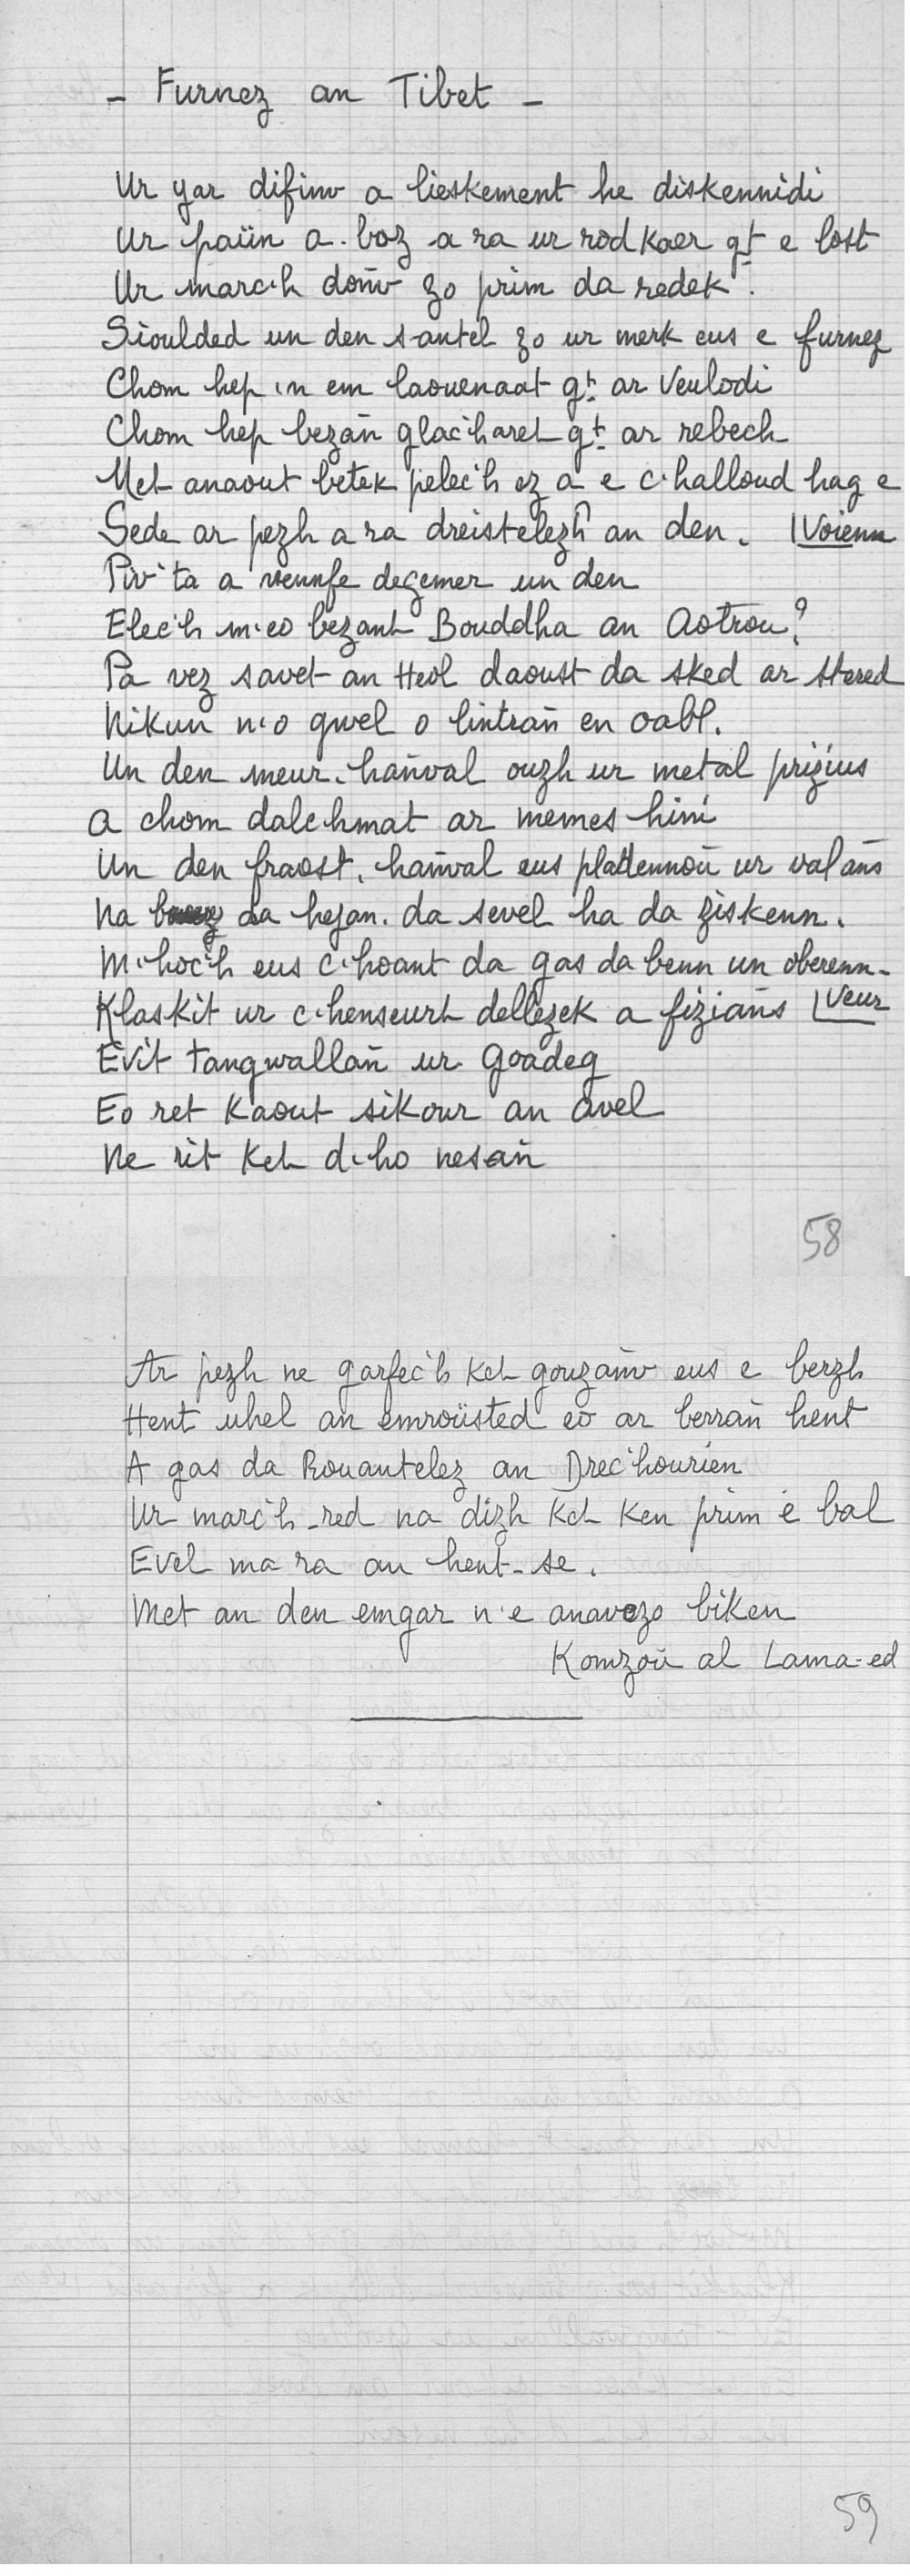 - Furnez an Tibet -
Ur yar difinv a lieskement he diskennidi
Ur paün a-boz a ra ur rod kaer gt e lost
Ur marc'h doñv zo prim da redek.
Sioulded un den santel zo ur merk eus e furnez
Chom hep in em laouenaat gt ar Veulodi
Chom hep bezañ glac'haret gt ar rebech
Met anaout betek pelec'h ez a e c'halloud hag e
Sede ar pezh a ra dreistelezh an den. | Voienn
Piv 'ta a vennfe degemer un den
Elec'h m'eo bezant Bouddha an Aotrou?
Pa vez savet an Heol daoust da sked ar stered
Nikun n'o gwel o lintrañ en oabl.
Un den meur, hañval ouzh ur metal prizius
A chom dalchmat ar memes hini
Un den fraost, hañval eus plattennoù ur valañs
Na da hejañ. da sevel ha da ziskenn.
M'hoc'h eus c'hoant da gas da benn un oberenn-
Klaskit ur c'henseurt dellezek a fizians | Veur
Evit tangwallañ ur Goadeg
Eo ret Kaout sikour an avel
Ne rit Ket d'ho nesañ
58
Ar pezh ne garfec'h Ket gouzañv eus e berzh
Hent uhel an emroüsted eo ar berrañ hent
A gas da Rouantelez an Drec'hourien
Ur marc'h-red na dizh Ket Ken prim e bal
Evel ma ra an hent-se.
Met an den emgar n'e anavezo biken
Komzoù al Lama-ed
59